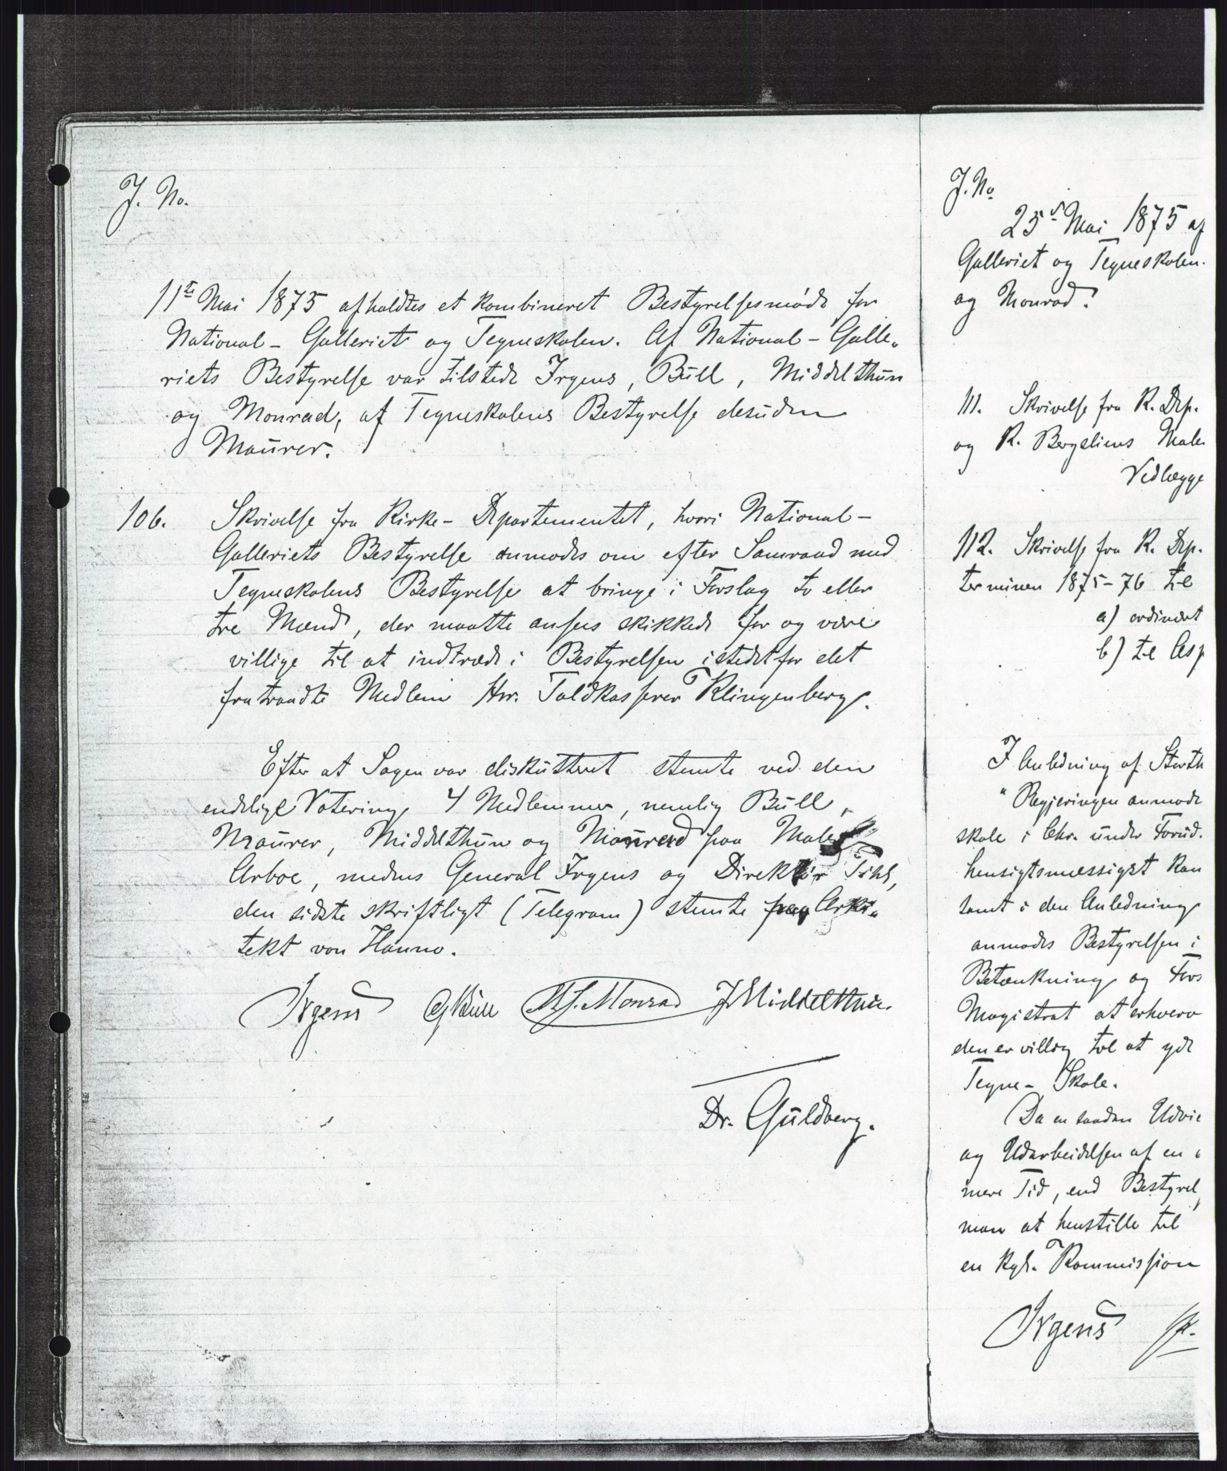 J. No.
11te Mai 1875 afholdtes et kombineret Bestyrelsesmøde for
National-Galleriet og Tegneskolen. Af National-Galle-
riets Bestyrelse var tilstede Irgens, Bull, Middelthun
og Monrad, af Tegneskolens Bestyrelse desuden
Maurer.
106. Skrivelse fra Kirke-Departementet, hvori National-
Galleriets Bestyrelse anmodes om efter Samraad med
Tegneskolens Bestyrelse at bringe i Forslag to eller
tre Mænd, der maatte ansees skikkede for og være
villige til at indtræde i Bestyrelsen istedetfor det
fratraadte Medlem Hr. Toldkasserer Klingenberg.
Efter at Sagen var diskutteret stemte ved den
endelige Votering 4 Medlemmer, nemlig Bull,
Maurer, Middelthun og Monrad paa Maler
Arboe, medens General Irgens og Direktør
den sidste skriftligt (Telegram) stemte paa Arki-
tekt von Hanno.
Irgens G Bull M. J. Monrad J Middelthun.
Dr. Guldberg.
J. No
25de Mai 1875 af
Galleriet og Tegneskolen.
og Monrad.
111. Skrivelse fra K. Dep.
og K. Bergsliens Male
Vedlægge
112. Skrivelse fra K. Dep.
terminen 1875-76 til
a) ordinært
b) til Asp
I Anledning af Storth
"Regjeringen anmode
skole i Chr. under Forud.
hensigtsmæssigst kan
samt i den Anledning
anmodes Bestyrelsen i
Betænkning og Fors
Magistrat at erhverv
den er villig til at yde
Tegne-Skole.
Da en saadan Udvi
og Udarbeidelsen af en
mere Tid, end Bestyrel
man at henstille til
en kgl. Kommission
Irgens